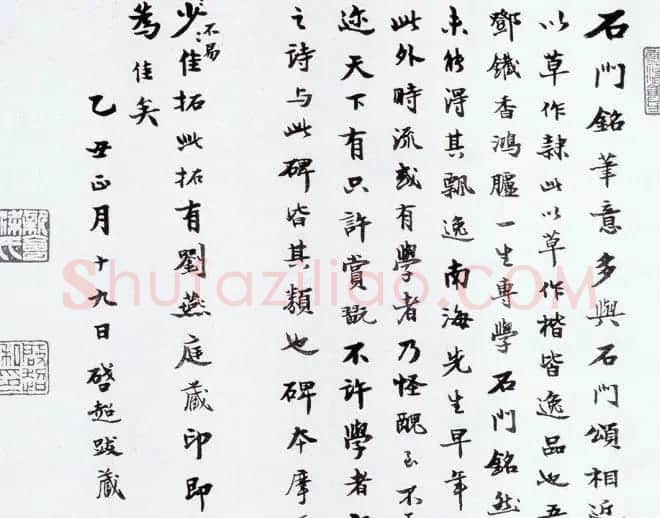 石門銘筆意多與石門頌相近
以草作隸此以草作楷皆逸品也
鄧鐵香鴻臚一生專學石門銘然
未能得其飄逸南海先生早年
此外時流或有學者乃怪醜至不
迹天下有只許賞玩不許學者
之詩與此碑皆其類也碑本摩
少不易佳拓此拓有劉燕庭藏印即
為佳矣
乙丑正月十九日啓超跋藏
Shufaziliao.COM